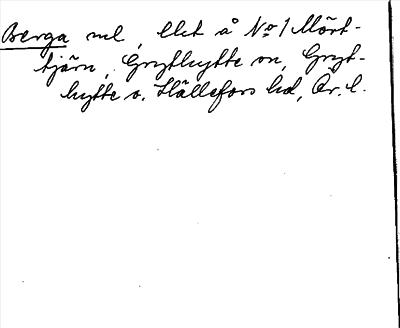 Berga nel, llet å No 1 Mört-
tjärn, Grythytte sn, Gryt-
hytte o. Hällefors hd, Ör. l.